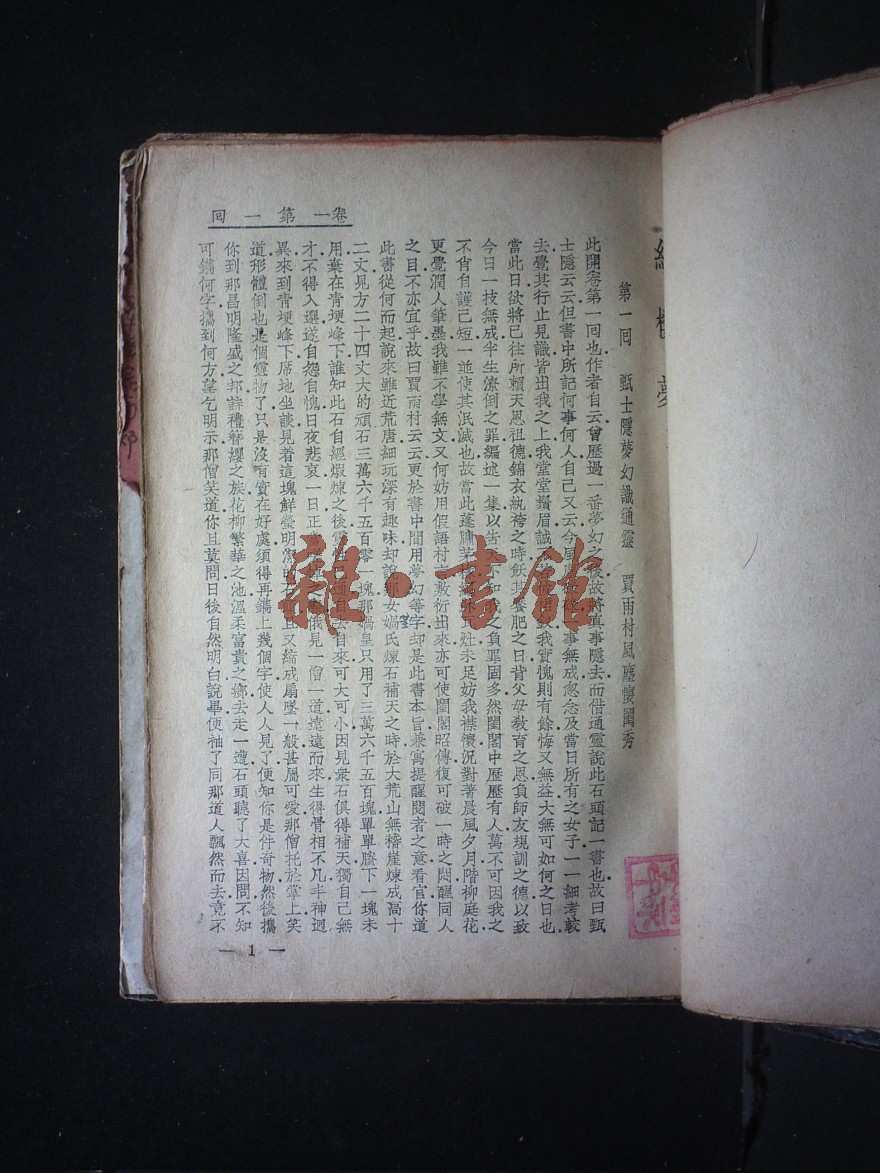 紅樓夢
第一回 甄士隱夢幻識通靈 賈雨村風塵懷閨秀
此開卷第一回也作者自云曾歷過一番夢幻之後故將眞事隱去而借通靈說此石頭記一書也故曰甄
士隱云云但書中所記何事何人自己又云今風塵碌碌一事無成忽念及當日所有之女子一一細考較
去覺其行止見識皆出我之上我堂堂鬚眉誠我實愧則有餘悔又無益大無可如何之日也
當此日欲將已往所賴天恩祖德錦衣紈袴之時飫其饜肥之日背父母敎育之恩負師友規訓之德以致
今日一技無成半生潦倒之罪編述一集以告知我之負罪固多然閨閣中歷歷有人萬不可因我之
不肖自護己短一並使其泯滅也故當此蓬牖茅灶未足妨我襟懷況對著晨風夕月階柳庭花
更覺潤人筆墨我雖不學無文又何妨用假語村言敷衍出來亦可使閨閣昭傳復可破一時之悶醒同人
之目不亦宜乎故曰賈雨村云云更於書中間用夢幻等字却是此書本旨兼寓提醒閱者之意看官你道
此書從何而起說來雖近荒唐細玩深有趣味却說那女媧氏煉石補天之時於大荒山無稽崖煉成高十
二丈見方二十四丈大的頑石三萬六千五百零一塊那媧皇只用了三萬六千五百塊單單賸下一塊未
用棄在青埂峰下誰知此石自經煆煉之後靈性通自去自來可大可小因見衆石俱得補天獨自己無
才不得入選遂自怨自愧日夜悲哀一日正俄見一僧一道遠遠而來生得骨相不凡丰神迥
異來到青埂峰下席地坐談見着這塊鮮瑩明潔且又縮成扇墜一般甚屬可愛那僧托於掌上笑
道形體倒也是個靈物了只是沒有實在好處須得再鐫上幾個字使人人見了便知你是件奇物然後攜
你到那昌明隆盛之邦詩禮簪纓之族花柳繁華之池溫柔富貴之鄉去走一遭石頭聽了大喜因問不知
可鐫何字攜到何方望乞明示那僧笑道你且莫問日後自然明白說畢便袖了同那道人飄然而去竟不
卷一第一回
— 1 —
雜·書館